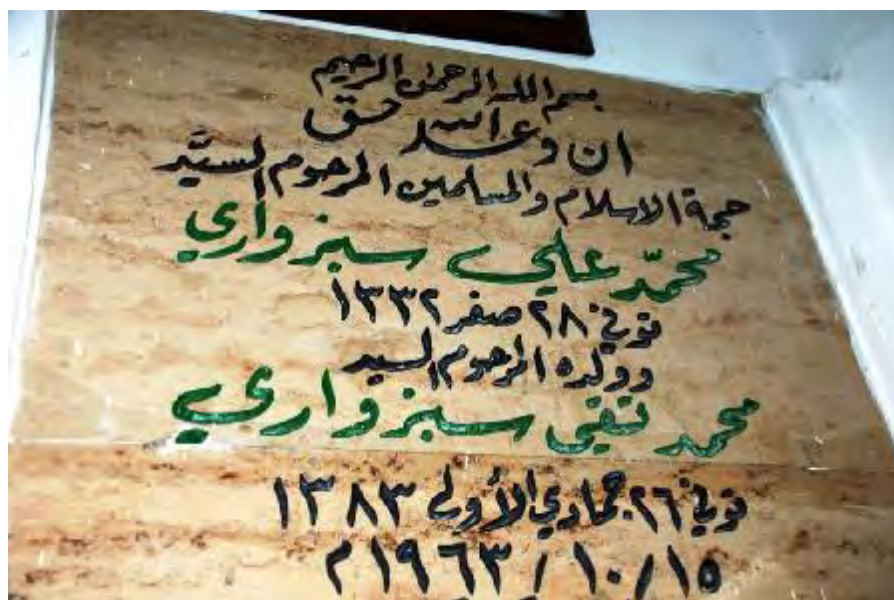 بسم الله الرحمن الرحيم
ان وعد الله حق
حجة الاسلام والمسلمين المرحوم السيَّد
محمّد علي سبزواري
توفي ٢٨ صفر ١٣٣٢
وولده المرحوم السيد
محمد تقي سبزواري
توفي ٢٦ جمادي الأولى ١٣٨٣
١٥/١٠/١٩٦٣م